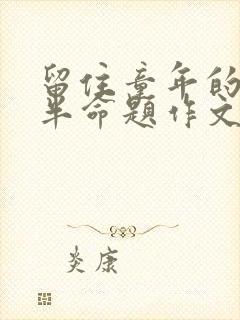 留住童年的
半命题作文
炎康